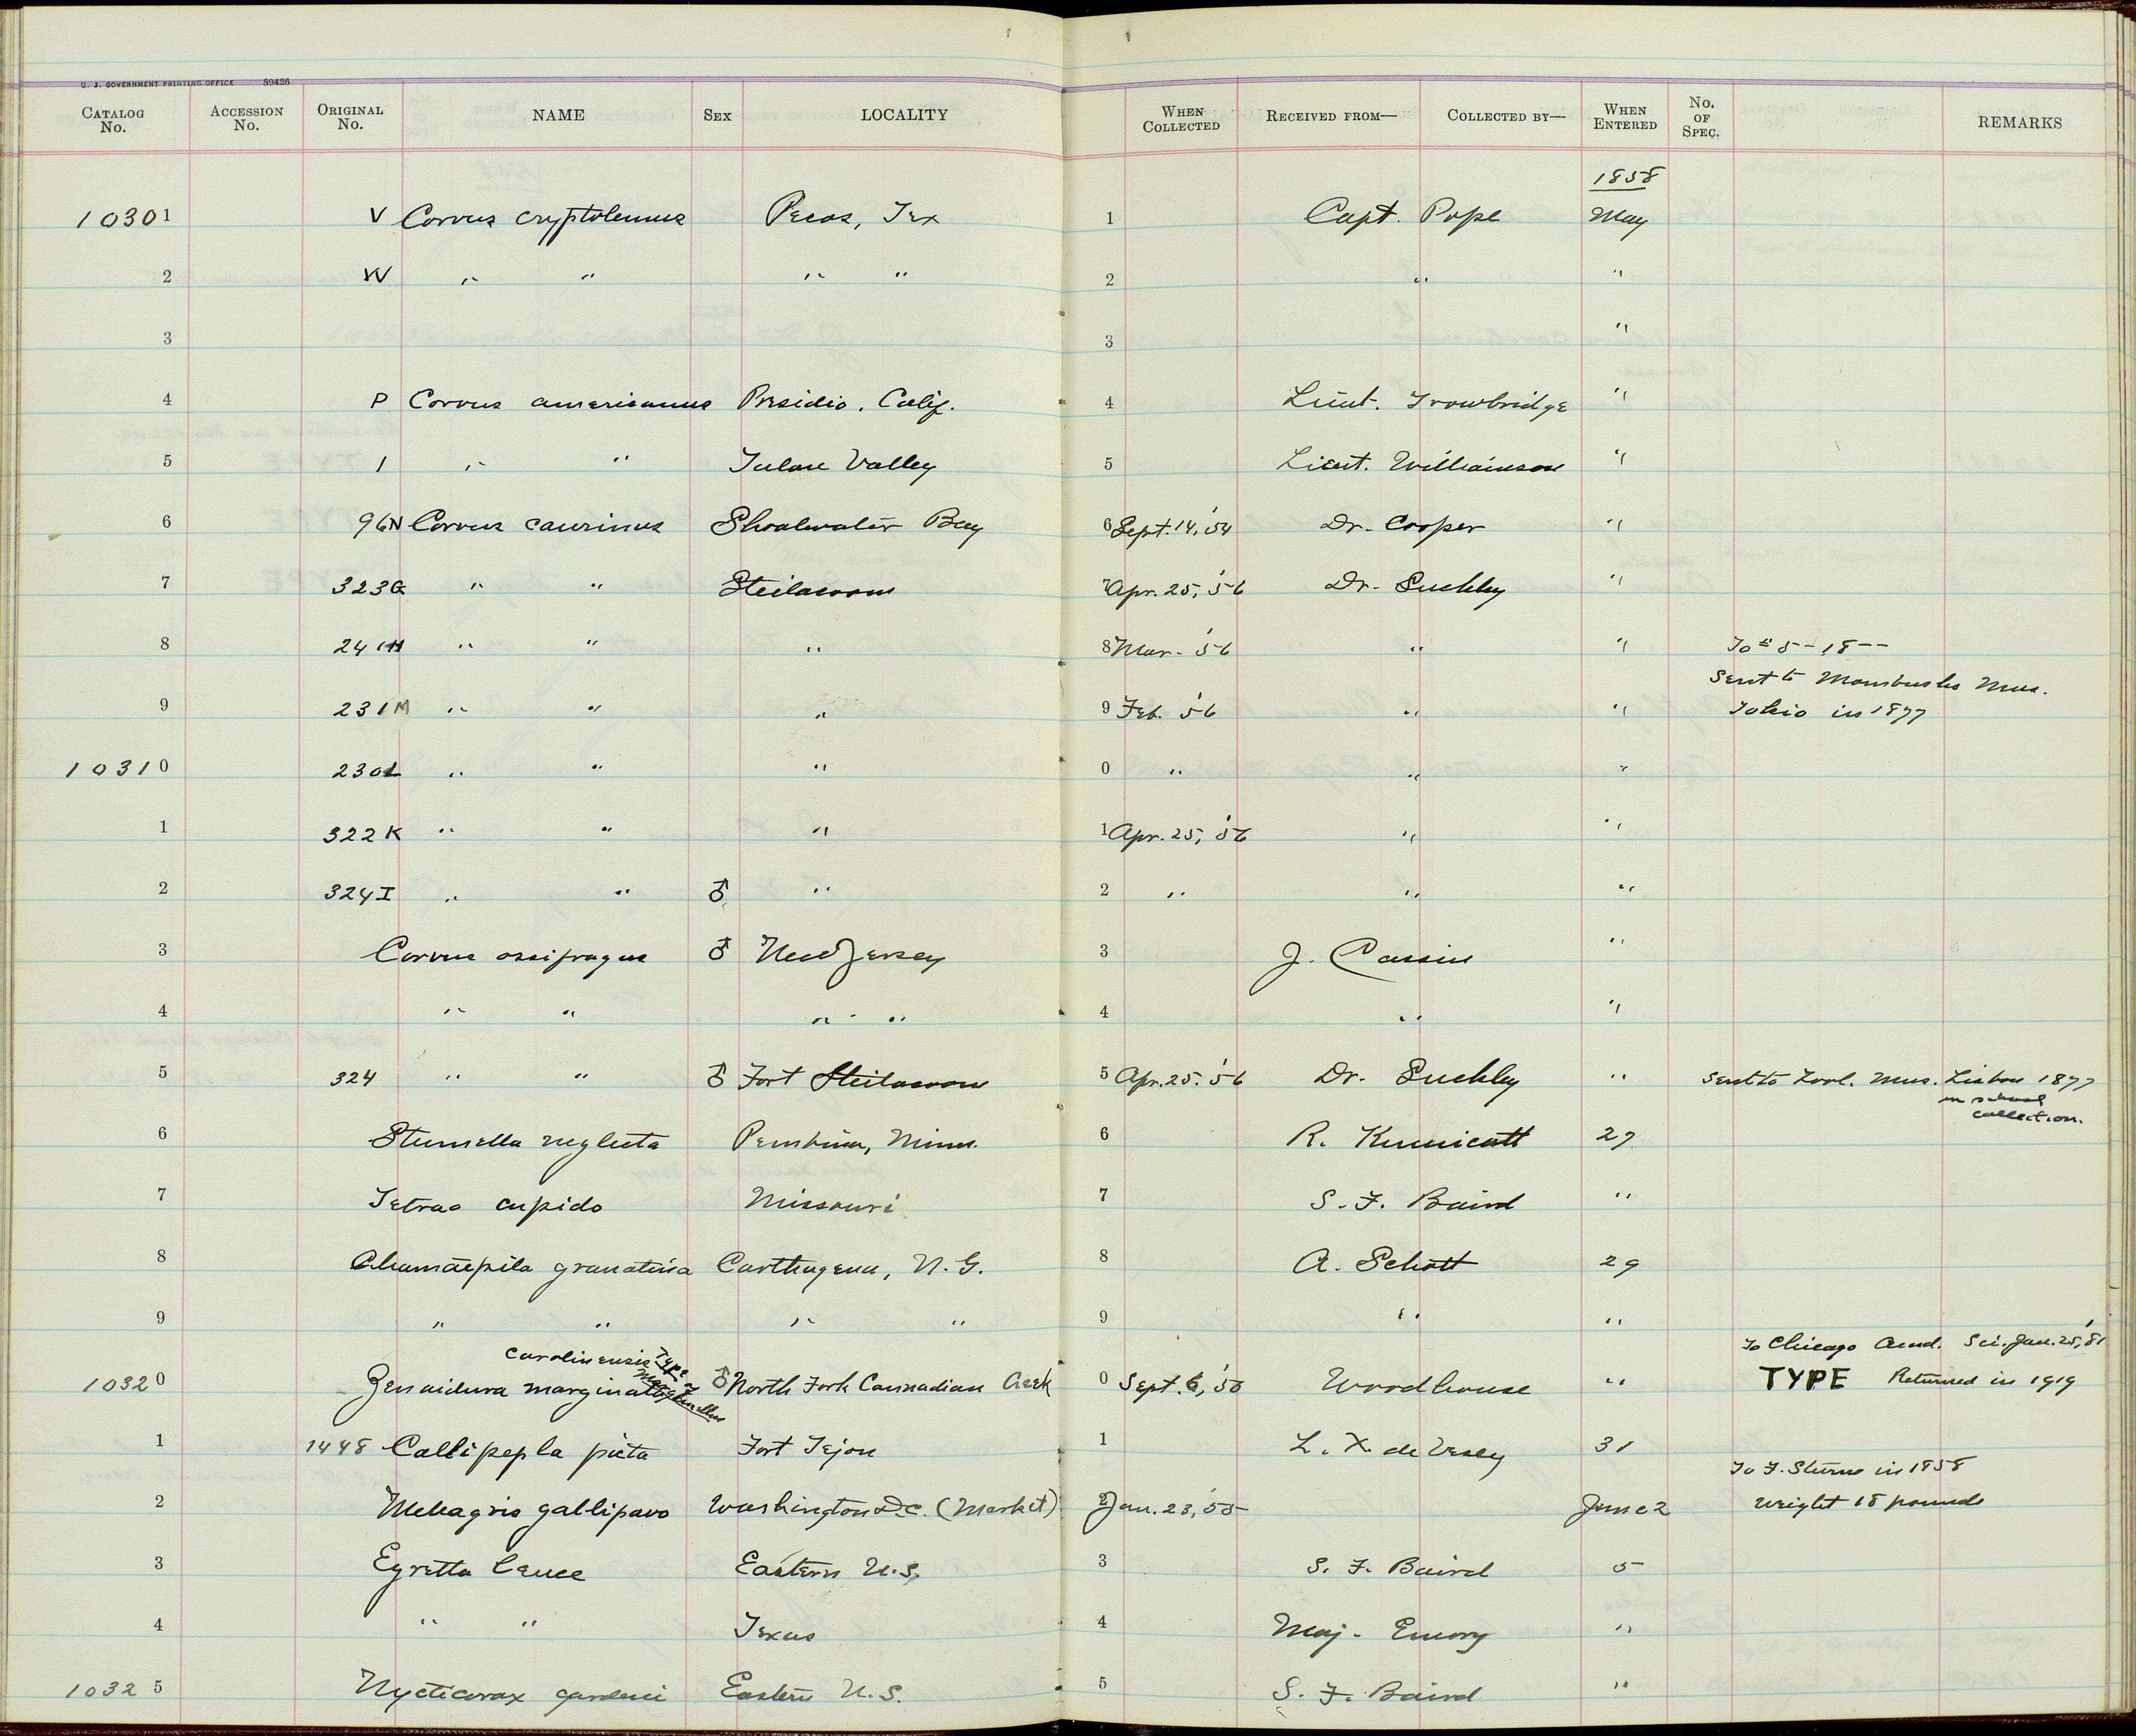 U. S. GOVERNMENT PRINTING OFFICE 89426
CATALOG No. ACCESSION No. ORIGINAL No. NAME SEX LOCALITY WHEN COLLECTED RECEIVED FROM— COLLECTED BY— WHEN ENTERED No. OF SPEC. REMARKS
1858
10301 V Corvus cryptoleucus Pecos, Tex 1 Capt. Pope May
2 W " " " " 2 " "
3 3 "
4 P Corvus americanus Presidio, Calif. 4 Lieut. Trowbridge "
5 1 " " Tulare Valley 5 Lieut. Williamson "
6 96N Corvus caurinus Shoalwater Bay 6 Sept. 14, '54 Dr. Cooper "
7 323G " " Steilacoom 7 Apr. 25, '56 Dr. Suckley "
8 241H " " " 8 Mar. '56 " "
Sent to Mus.
9 231M " " " 9 Feb. '56 " " Tokio in 1877
10310 230L " " " 0 " " "
1 322K " " " 1 Apr. 25, '56 " "
2 324I " " ♂ " 2 " " "
3 Corvus ossifragus ♂ New Jersey 3 J. Cassin "
4 " " " " 4 " "
5 324 " " ♂ Fort Steilacoom 5 Apr. 25, '56 Dr. Suckley " Sent to Zool. Mus. Lisbon 1877
in school
collection.
6 Sturnella neglecta Pembina, Minn. 6 R. Kennicott 27
7 Tetrao cupido Missouri 7 S. F. Baird "
8 Chamaepelia granatina Carthagena, N. G. 8 A. Schott 29
9 " " " " 9 " "
carolinensis Type of
To Chicago Acad. Sci. Jan. 25, '81
10320 Zenaidura marginatus ♂ North Fork Cannadian Creek 0 Sept. 6, '50 Woodhouse " TYPE Returned in 1919
1 1448 Callipepla picta Fort Tejon 1 L. X. de Vesey 31
To F. Sturm in 1858
2 Meleagris gallipavo Washington D.C. (Market) 2 Jan. 23, '55 June 2 Weight 18 pounds
3 Egretta leuce Eastern U.S. 3 S. F. Baird 5
4 " " Texas 4 Maj. Emory "
10325 Nycticorax gardeni Eastern U.S. 5 S. F. Baird "